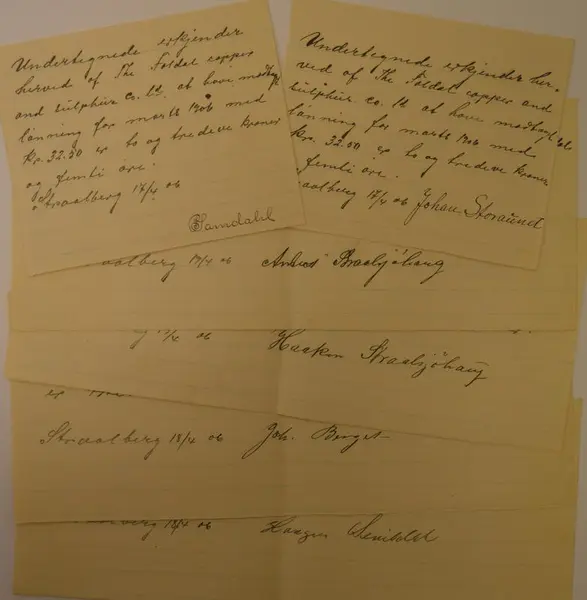 Undertegnede erkjender
herved af The Foldal copper
and sulphur co. Ld. at have modtat
lønning for marts 1906 med
kr. 32.50 er to og tredeve kroner
og femti øre.
Straalberg 17/4 06
Samdahl
Undertegnede erkjender her-
ved af The Foldal copper and
sulphur co. Ld at have modtat
lønning for marts 1906 med
kr. 32.50 er to og tredeve kroner
femti øre.
aalberg 17/4 06 Johan Storaund
aalberg 17/4 06 Straalsjöhaug
/4 06 Haakon Straalsjöhaug
Straalberg 18/4 06 Joh. Berget
berg 18/4 06